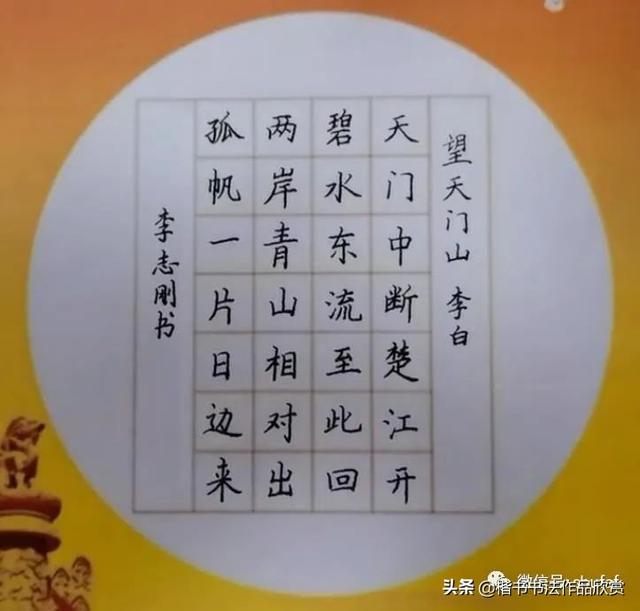 望天门山 李白
天门中断楚江开
碧水东流至此回
两岸青山相对出
孤帆一片日边来
李志刚书
头条@楷书书法作品欣赏